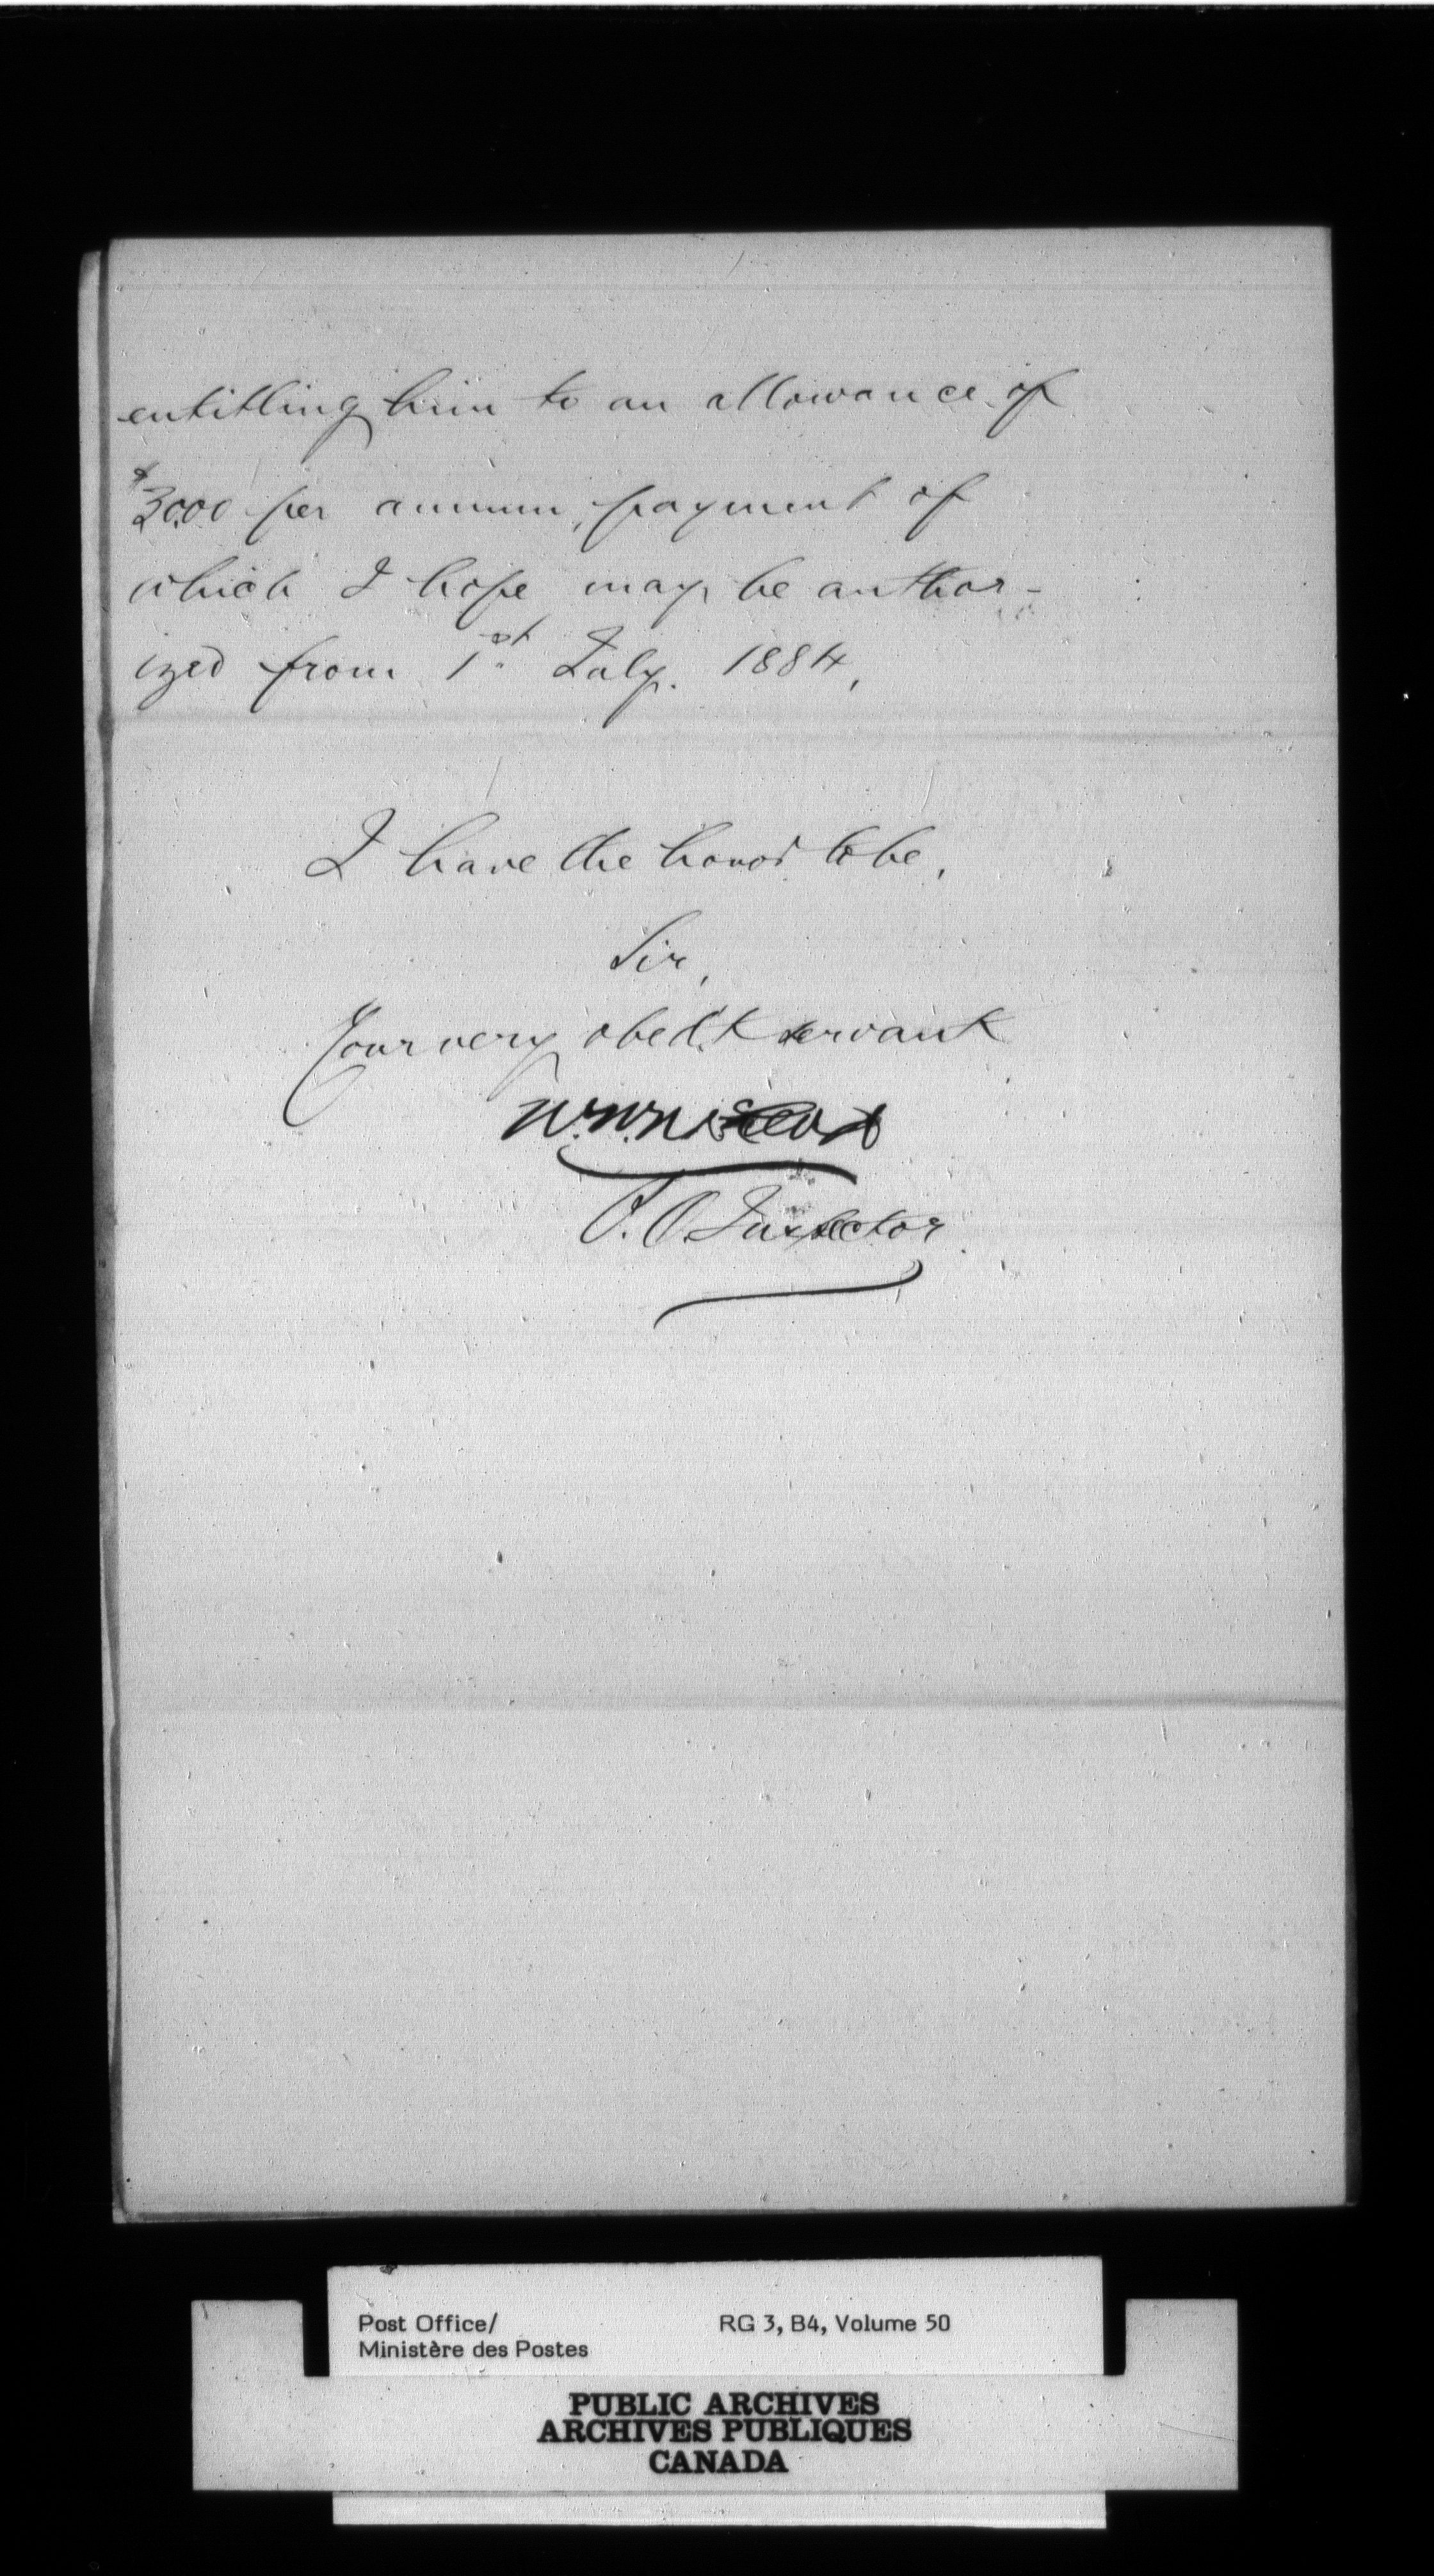 entitling him to an allowance of
$30.00 per annum, payment of
which I hope may be author-
ized from 1st July. 1884,
I have the honor to be,
Sir,
Your very obed't servant
P. O. Inspector
Post Office/
Ministère des Postes
RG 3, B4, Volume 50
PUBLIC ARCHIVES
ARCHIVES PUBLIQUES
CANADA